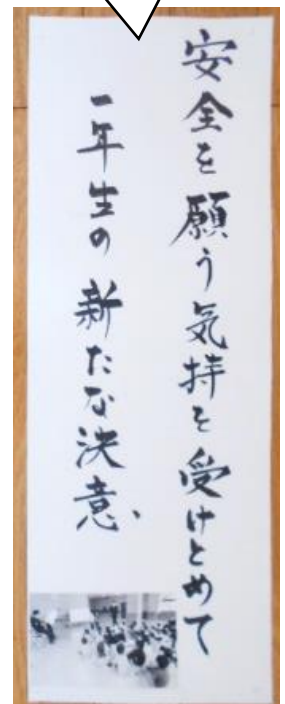 安全を願う気持を受けとめて
一年生の新たな決意、